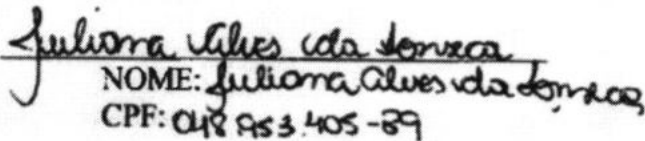 Juliana Alves da Fonseca
NOME: Juliana Alves da Fonseca
CPF: 048.953.405-89